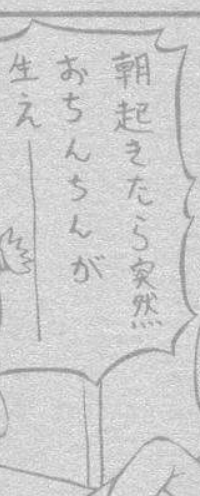 朝起きたら突然
おちんちんが
生え――